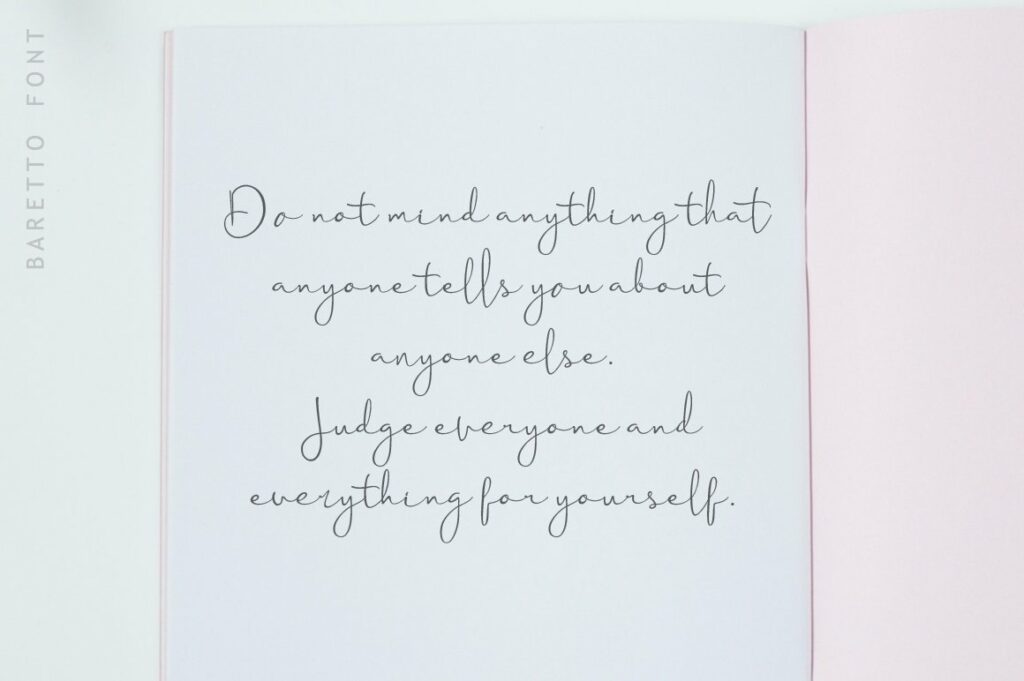 BARETTO FONT
Do not mind anything that
anyone tells you about
anyone else.
Judge everyone and
everything for yourself.